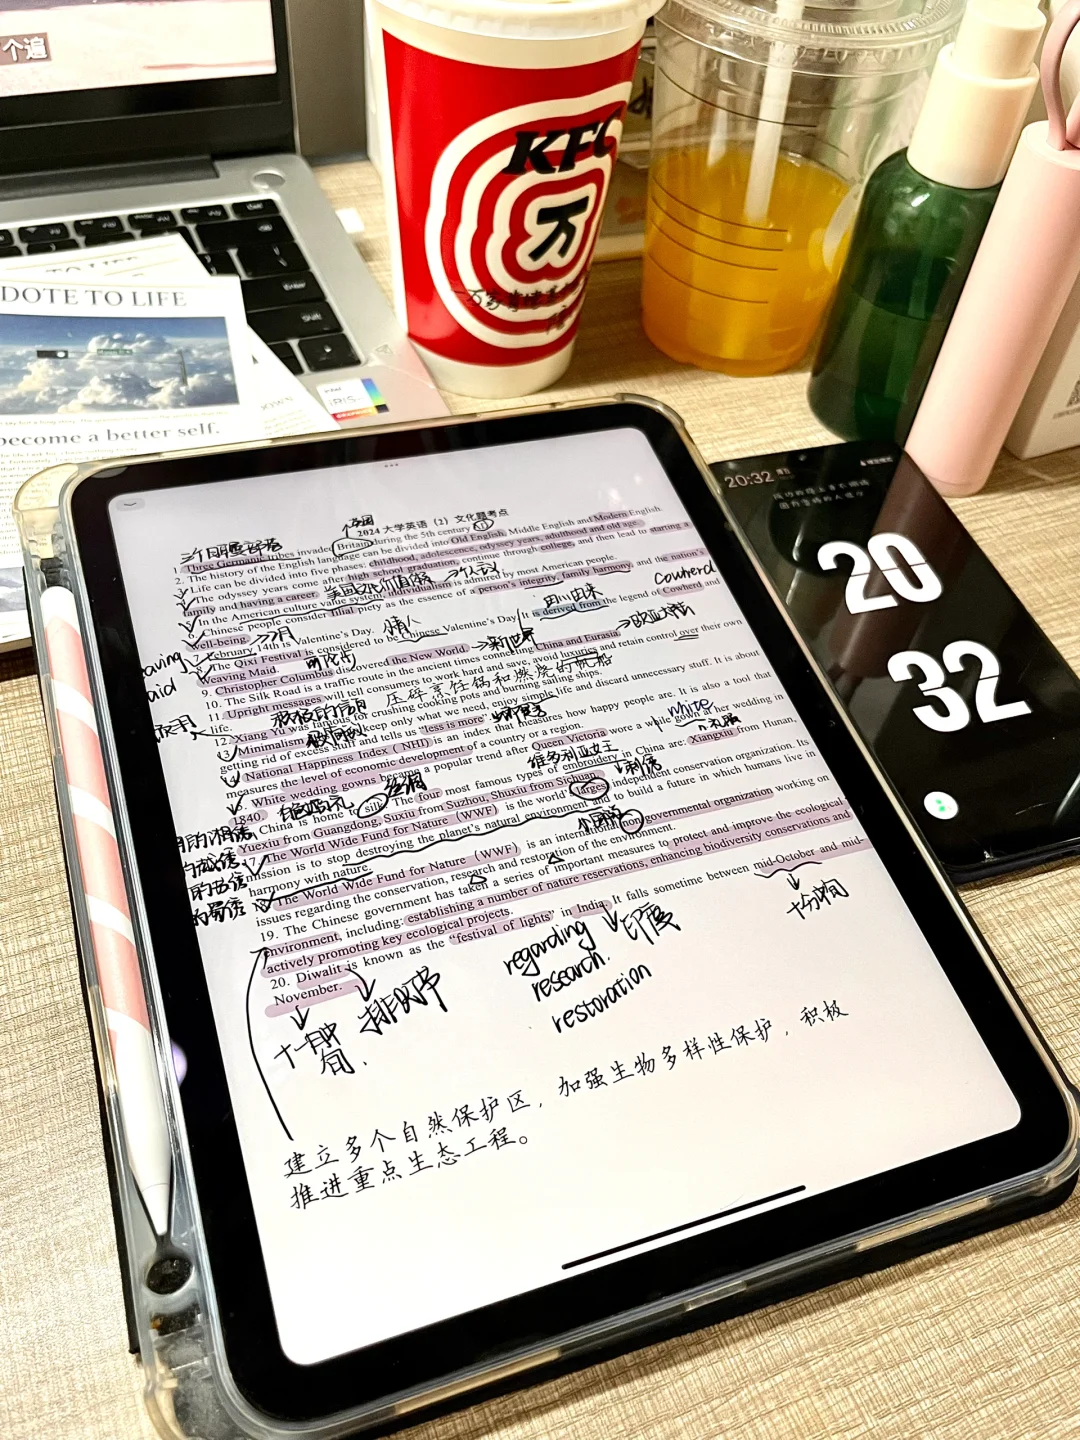 个遍
DOTE TO LIFE
become a better self.
KFC
万
intel
IRIS
Shift
20:32
20
32
英国
2024 大学英语（2）文化题考点
1. Three Germanic tribes invaded Britain during the 5th century AD
2. The history of the English language can be divided into Old English, Middle English and Modern English.
Life can be divided into five phases: childhood, adolescence, odyssey years, adulthood and old age.
The odyssey years come after high school graduation, continue through college, and then lead to starting a
family and having a career.
美国文化价值体系
个人主义
In the American culture value system, individualism is admired by most American people.
Chinese people consider filial piety as the essence of a person's integrity, family harmony, and the nation's
well-being.
二月
情人
由
Cowherd
February 14th is Valentine's Day.
The Qixi Festival is considered to be Chinese Valentine's Day. It is derived from the legend of Cowherd and
Weaving Maid.
eaving
aid
新世界
欧亚大陆
9. Christopher Columbus discovered the New World
10. The Silk Road is a traffic route in ancient times connecting China and Eurasia.
11. Upright messages will tell consumers to work hard and save, avoid luxuries and retain control over their own
life.
积极的信息
压碎烹饪锅和燃烧的帆船
12. Xiang Yu was famous for crushing cooking pots and burning sailing ships.
13. Minimalism keep only what we need, enjoy simple life and discard unnecessary stuff. It is about
getting rid of excess stuff and tells us "less is more"
National Happiness Index (NHI) is an index that measures how happy people are. It is also a tool that
measures the level of economic development of a country or a region.
维多利亚女王
white
White wedding gowns became a popular trend after Queen Victoria wore a white gown at her wedding in
1840.
丝绸
刺绣
China is home to silk. The four most famous types of embroidery in China are: Xiangxiu from Hunan,
Yuexiu from Guangdong, Suxiu from Suzhou, Shuxiu from Sichuan.
The World Wide Fund for Nature (WWF) is the world's largest independent conservation organization. Its
mission is to stop destroying the planet's natural environment and to build a future in which humans live in
harmony with nature.
The World Wide Fund for Nature (WWF) is an international non-governmental organization working on
issues regarding the conservation, research and restoration of the environment.
19. The Chinese government has taken a series of important measures to protect and improve the ecological
environment, including: establishing a number of nature reservations, enhancing biodiversity conservations and
actively promoting key ecological projects.
20. Diwalit is known as the "festival of lights" in India. It falls sometime between mid-October and mid-
November.
印度
十月中旬
regarding
research.
restoration
排灯节
十一月中
旬.
建立多个自然保护区，加强生物多样性保护，积极
推进重点生态工程。